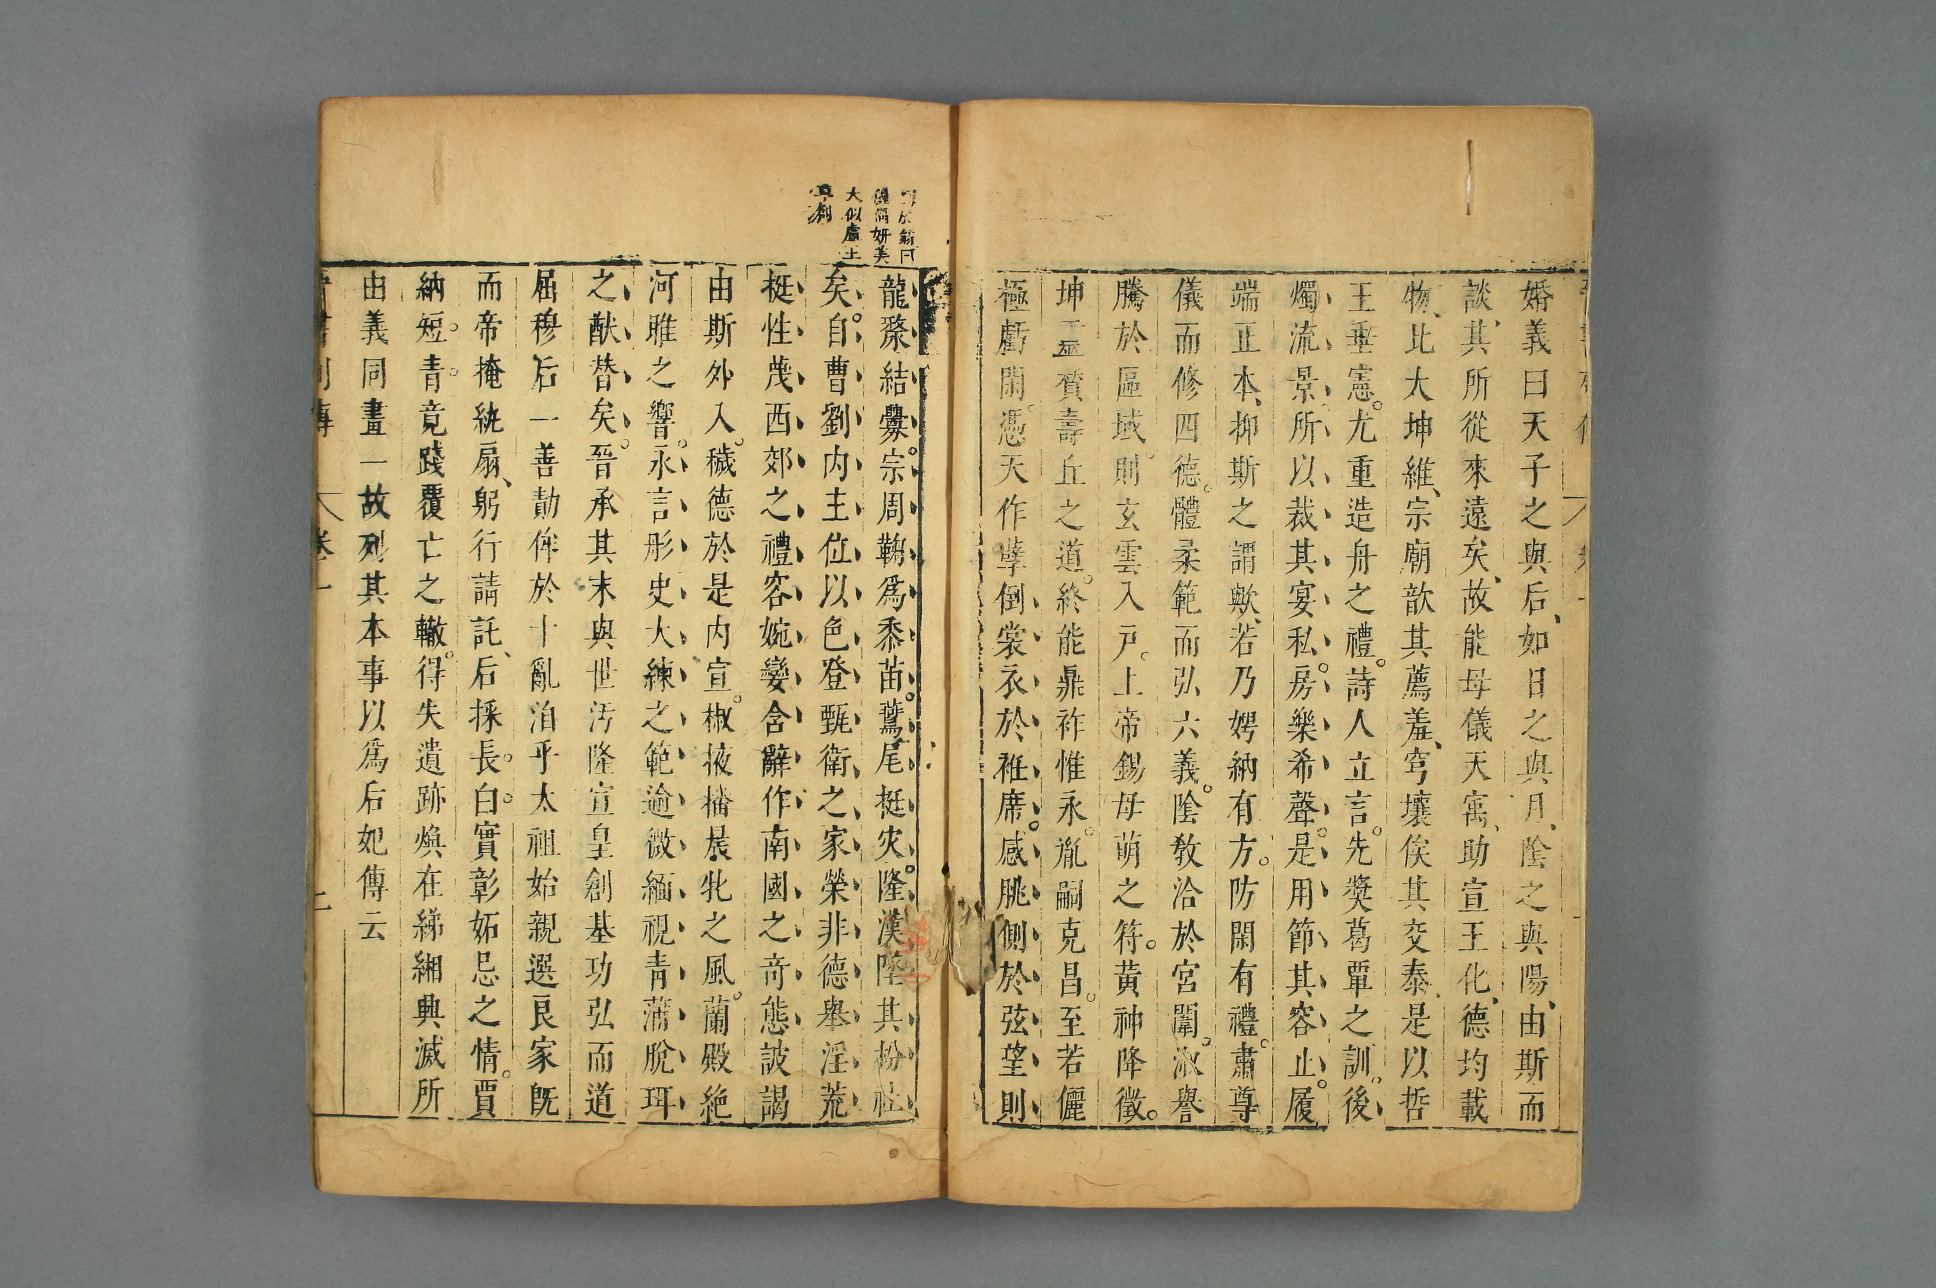 婚義曰天子之與后、如日之與月、陰之與陽、由斯而
談、其所從來遠矣、故能母儀天寓、助宣王化、德均載
物、比大坤維、宗廟歆其薦羞、穹壤俟其交泰、是以哲
王垂憲。尤重造舟之禮。詩人立言。先奬葛覃之訓。後
燭流景、所以裁其宴私。房樂希聲。是用節其容止。履
端正本、抑斯之謂歟、若乃娉納有方。防閑有禮。肅尊
儀而修四德。體柔範而弘六義。陰教洽於宮闈。淑譽
騰於區域。則玄雲入戸。上帝錫母萌之符。黃神降徵。
坤靈贊壽丘之道。終能鼎祚惟永。胤嗣克昌。至若儷
極虧閑。憑天作孽、倒裳衣於衽席。感朓側於弦望、則
龍漦結釁。宗周鞠爲黍苗。鷰尾挻灾。隆漢墜其枌社
矣。自曹劉內主、位以色登、甄衛之家、榮非德舉、淫荒
挻性、蔑西郊之禮、容婉孌含辭、作南國之奇態、詖謁
由斯外入。穢德於是內宣。椒掖播晨牝之風。蘭殿絕
河雎之響。永言彤史、大練之範逾微、緬視青蒲、脫珥
之猷替矣。晉承其末、與世汚隆、宣皇創基、功弘而道
屈、穆后一善、勣侔於十亂、洎乎太祖、始親選良家、旣
而帝掩紈扇、躬行請託、后採長。白。實彰妬忌之情。賈
納短。青。竟踐覆亡之轍。得失遺跡、煥在綈緗、興滅所
由、義同畫一、故列其本事、以爲后妃傳云
晉書列傳 卷一 二
穠僩妍美
大似盧王
草創